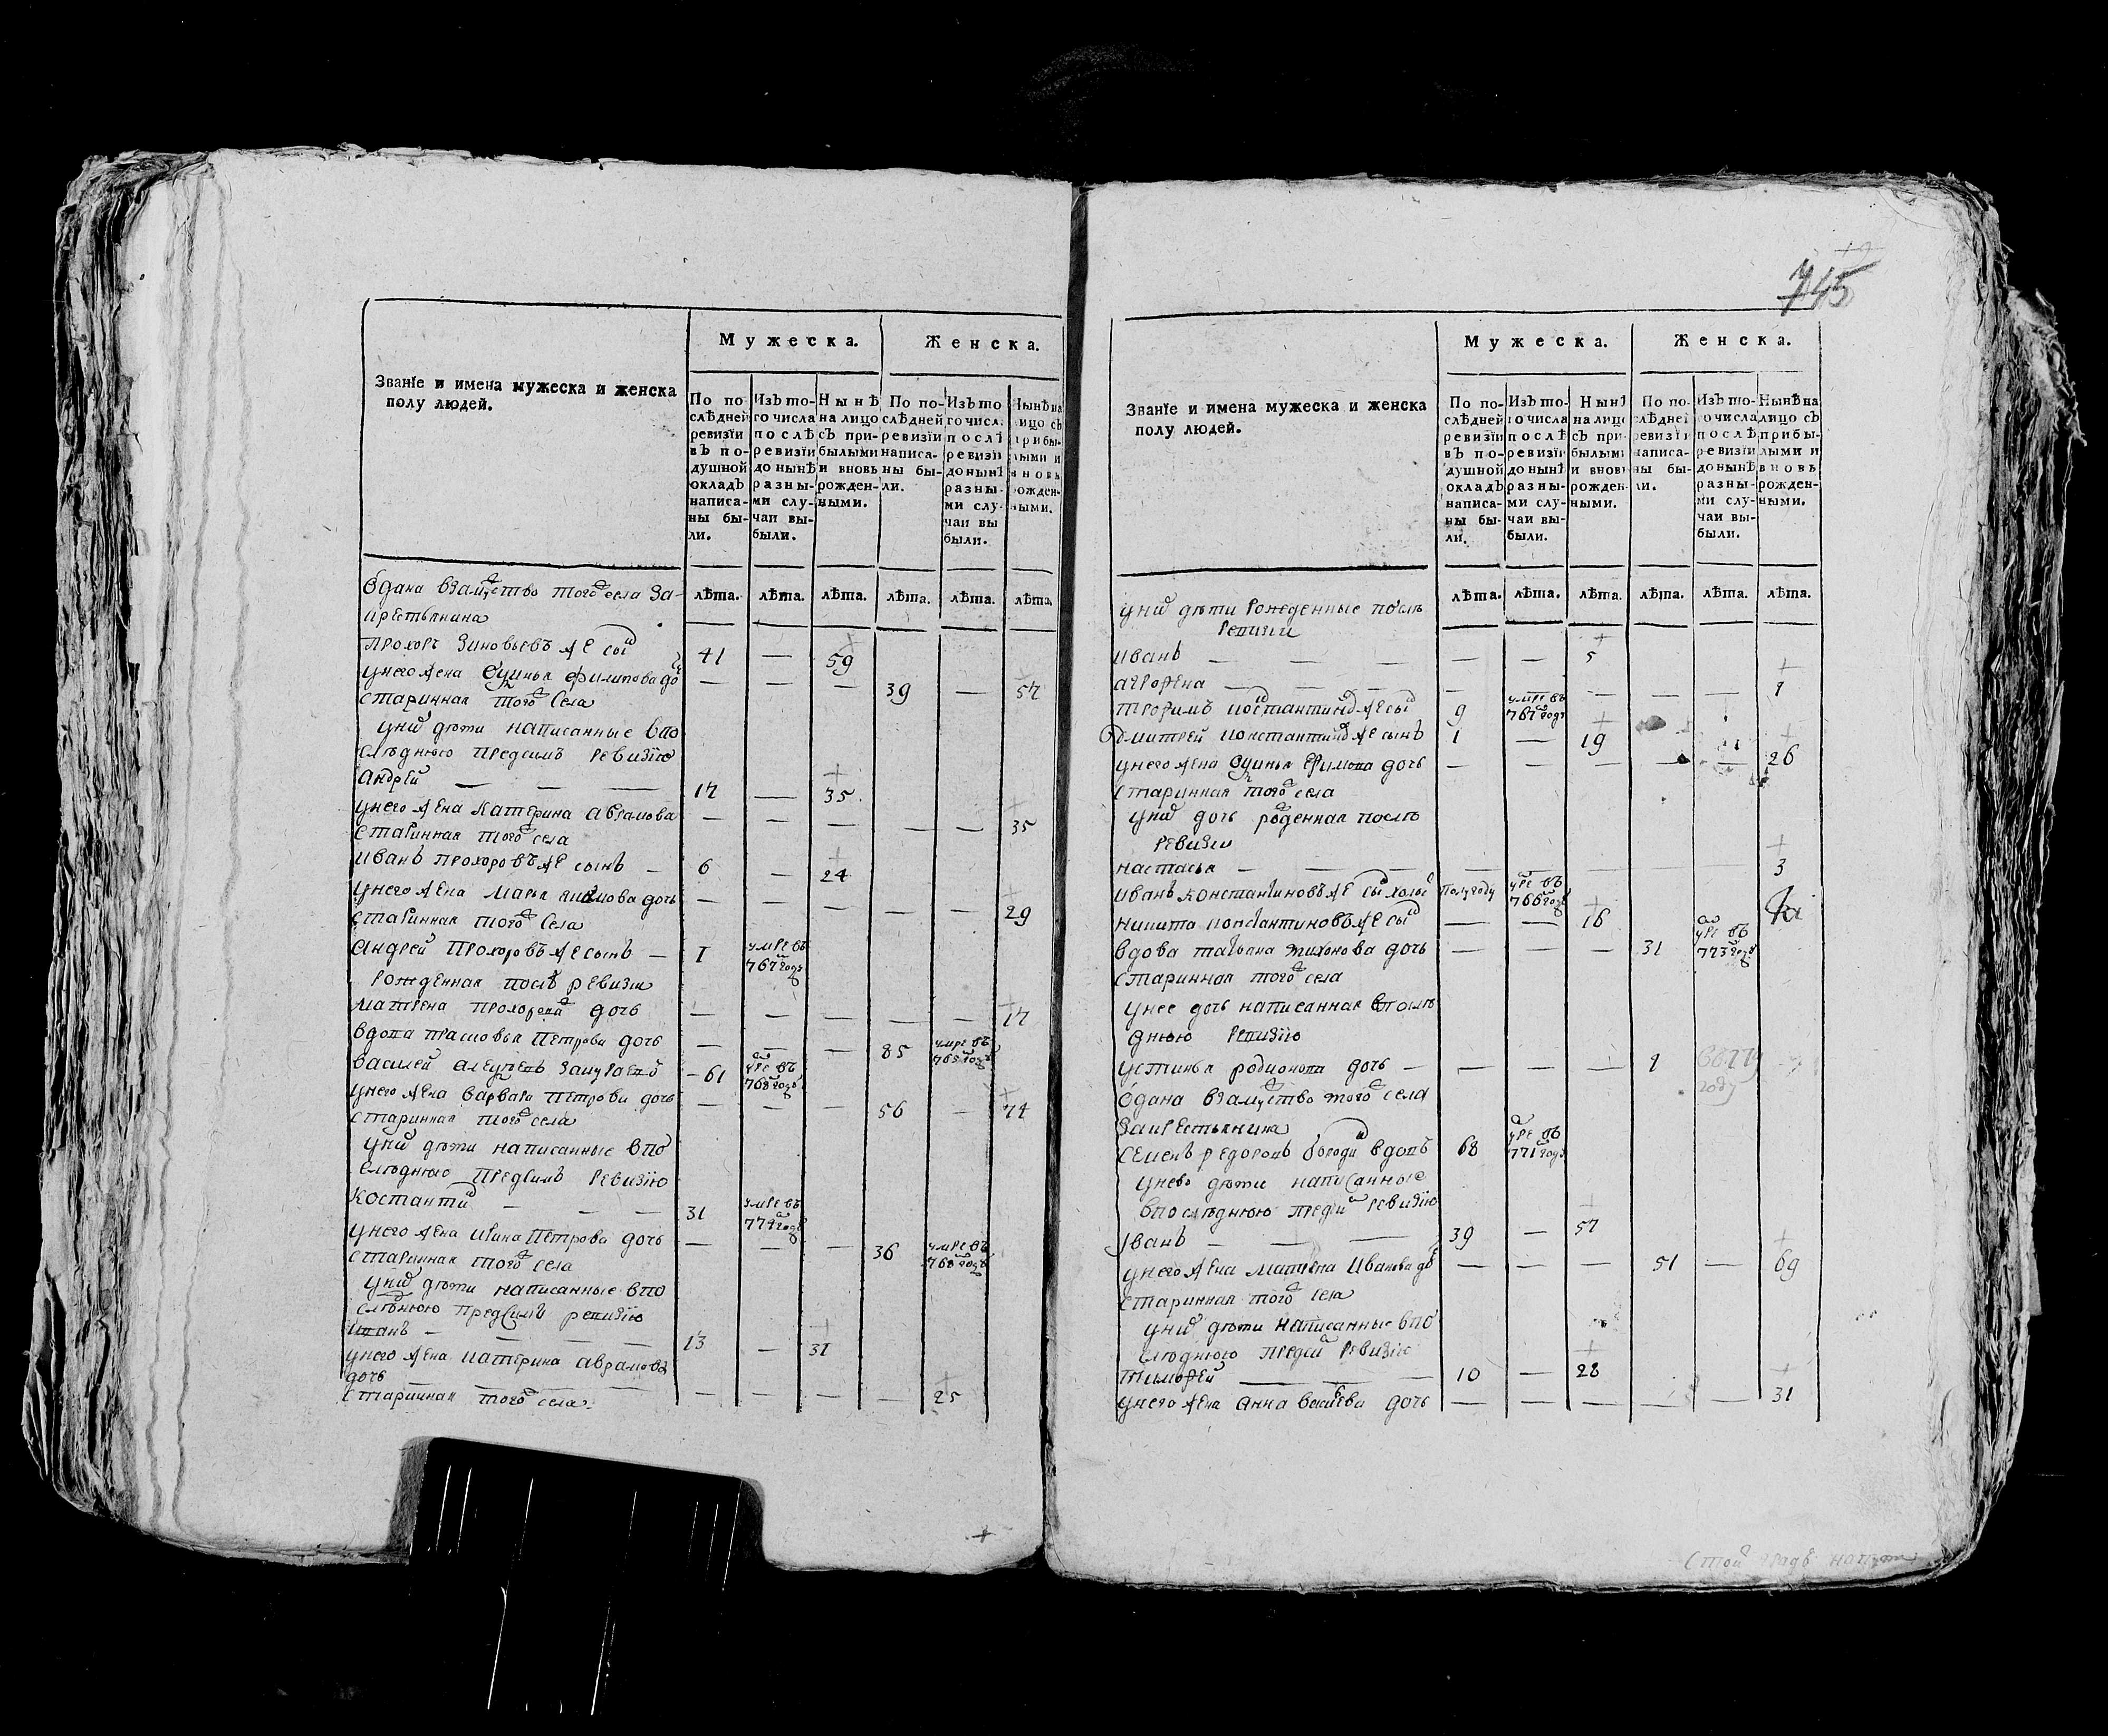 Мужеска.
Женска.
Званїе и имена мужеска и женска
полу людей.
По по-
слѣдней
ревизїи
въ по-
душной
окладъ
написа-
ны бы-
ли.
Изъ то-
го числа
послѣ
ревизїи
до нынѣ
разны-
ми слу-
чаи вы-
были.
Нынѣ
на лицо
съ при-
былыми
и вновь
рожден-
ными.
По по-
слѣдней
ревизїи
написа-
ны бы-
ли.
Изъ то
го числ
послѣ
ревизїи
до нынѣ
разны-
ми слу-
чаи вы
были.
Нынѣ на
лицо съ
прибы-
лыми и
вновь
рожден-
ными.
лѣта. лѣта. лѣта. лѣта. лѣта. лѣта.
Ѡдана взамуство того села за
крестьянина
Прохоръ Зиновьевъ сынъ 41 — 59
у него жена Филипова до — — — 39 — 57
старинная того села
у них дети написанные в по
следнюю пред сим ревизию
Андрей — — — 17 — 35
у него жена Катерина Аврамова — — — — — 35
старинная того села
Иванъ Прохоровъ сынъ — 6 — 24
у него жена Марья дочь — — — — — 29
старинная того села
Андрей Прохоровъ сынъ — 1 умре въ 767 годе
рожденная после ревизии
Матрена Прохорова дочь — — — — — 17
вдова Прасковья Петрова дочь — — — 85 умре въ 765 годе
Василей 61 умре въ 768 годе
у него жена Варвара Петрова дочь — — — 56 — 74
старинная того села
у них дети написанные в по
следнюю пред сим ревизию
Костантин — — — 31 умре въ 774 годе
у него жена Ирина Петрова дочь — — — 36 умре въ 768 годе
старинная того села
у них дети написанные в по
следнюю пред сим ревизию
Иванъ — — — — 13 — 31
у него жена Катерина Аврамова
дочь
старинная того села — — — — 25
745
Мужеска.
Женска.
Званїе и имена мужеска и женска
полу людей.
По по-
слѣдней
ревизїи
въ по-
душной
окладъ
написа-
ны бы-
ли.
Изъ то-
го числа
послѣ
ревизїи
до нынѣ
разны-
ми слу-
чаи вы-
были.
Нынѣ
на лицо
съ при-
былыми
и вновь
рожден-
ными.
По по-
слѣдней
ревизїи
написа-
ны бы-
ли.
Изъ то-
го числа
послѣ
ревизїи
до нынѣ
разны-
ми слу-
чаи вы-
были.
Нынѣ на
лицо съ
прибы-
лыми и
вновь
рожден-
ными.
лѣта. лѣта. лѣта. лѣта. лѣта. лѣта.
у них дети рожденные после
ревизии
Иванъ — — — — — 5
— — — 1
Трофимъ Костантинов сынъ 9 умре въ 767 годе
Дмитрей Костантинов сынъ 1 — 19
у него жена Ефимова дочь — — — — — 26
старинная того села
у них дочь рожденная после
ревизии
Настасья — — — — — 3
Иванъ Константиновъ сынъ полугоду умре въ 766 годе
Никита Константиновъ сынъ — — 16
вдова Татьяна Тихонова дочь — — — 31 умре въ 773 годе
старинная того села
у нее дочь написанная в после
днюю ревизию
Устинья Родионова дочь — — — — 1
Ѡдана взамуство того села
за крестьянина
Семенъ Федоровъ вдовъ 68 умре въ 771 годе
у нево дети написанные
в последнюю пред сим ревизию
Иванъ — — — 39 — 57
у него жена Матрена Иванова до — — — 51 — 69
старинная того села
у них дети написанные в по
следнюю пред сим ревизию
Тимофей — — — 10 — 28
у него жена Анна Васильева дочь — — — — — 31